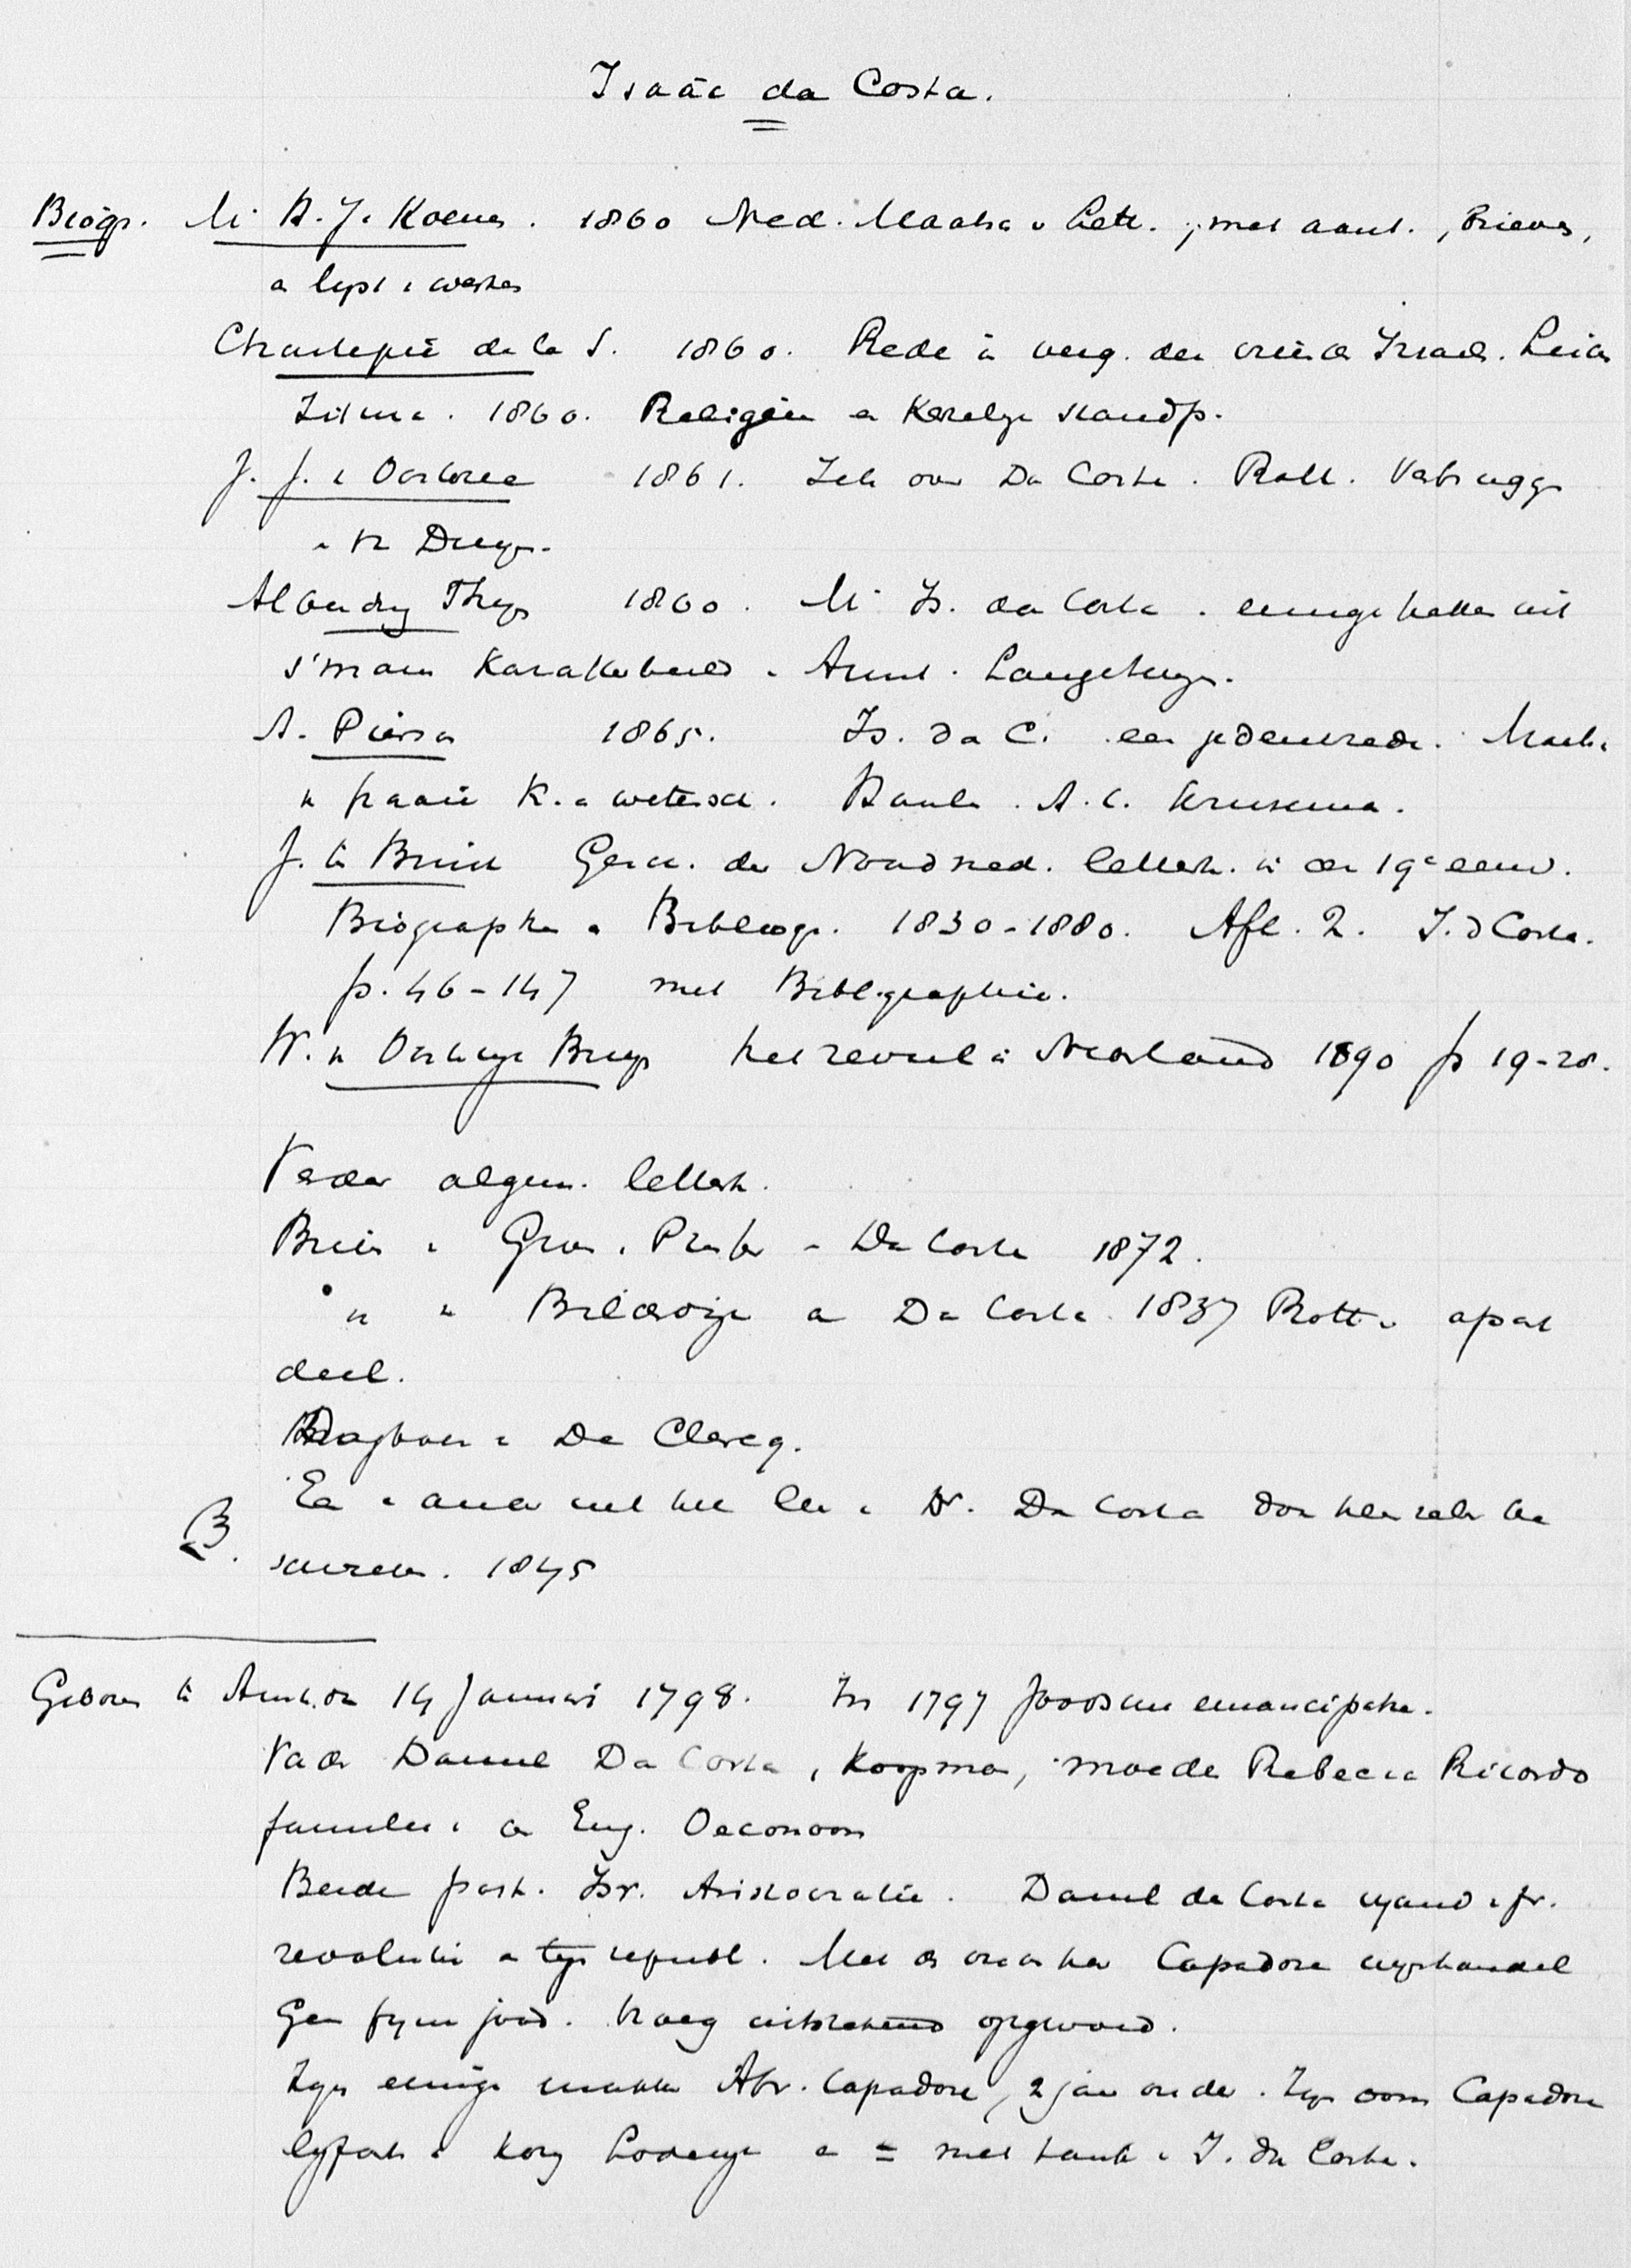 Isaäc da Costa.
Biogr. Mr H. J. Koenen. 1860 Ned. Maatsch v Lett. ; met aant., Brieven,
en lyst v werken
Chantepie de la S. 1860. Rede in verg. der vriend Israels. Leiden
1860. Religieus en Kerkelijk standp.
J. J. v Oosterzee 1861. Iets over Da Costa. Rott. Verbrugge
v Duym.
Alberdingk Thym 1860. Mr Is. da Costa. eenige trekken uit
s'mans Karakterbeeld. Amst. Langenhuyzen.
A. Pierson 1865. Is. Da C. een gedenkrede. Mannen
v fraaie K. en wetensch. Haarlem. A. C. Kruseman.
J. te Brink Gesch. der Noordned. letterk. in de 19e eeuw.
Biographie en Bibliogr. 1830-1880. Afl. 2. I. d Costa.
p. 46-147 met Bibliographie.
W. v Oosterwyk Bruyn het reveil in Nederland 1890 p 19-28.
Verder algem. letterk.
Brieven v Groen v Prinsterer - Da Costa 1872.
" " Bilderdijk en Da Costa. 1837 Rott. apart
deel.
Dagboek v De Clercq.
Een en ander uit het leven v Dr. Da Costa door hem zelv be
schreven. 1845
Geboren te Amst. den 14 Januari 1798. In 1797 Joodsche emancipatie.
Vader Daniel Da Costa, Koopman, moeder Rebecca Ricardo
familie v de Eng. Oeconoom
Beide port. Isr. Aristocratie. Daniel da Costa vyand v fr.
revolutie en republ. Met Capadose wynhandel
Geen fyne jood. Vroeg uitstekend opgevoed.
Zyn eenige makker Abr. Capadose, 2 jaar ouder. Zyn oom Capadose
lyfarts v Kon. Lodewyk en = met tante v I. Da Costa.